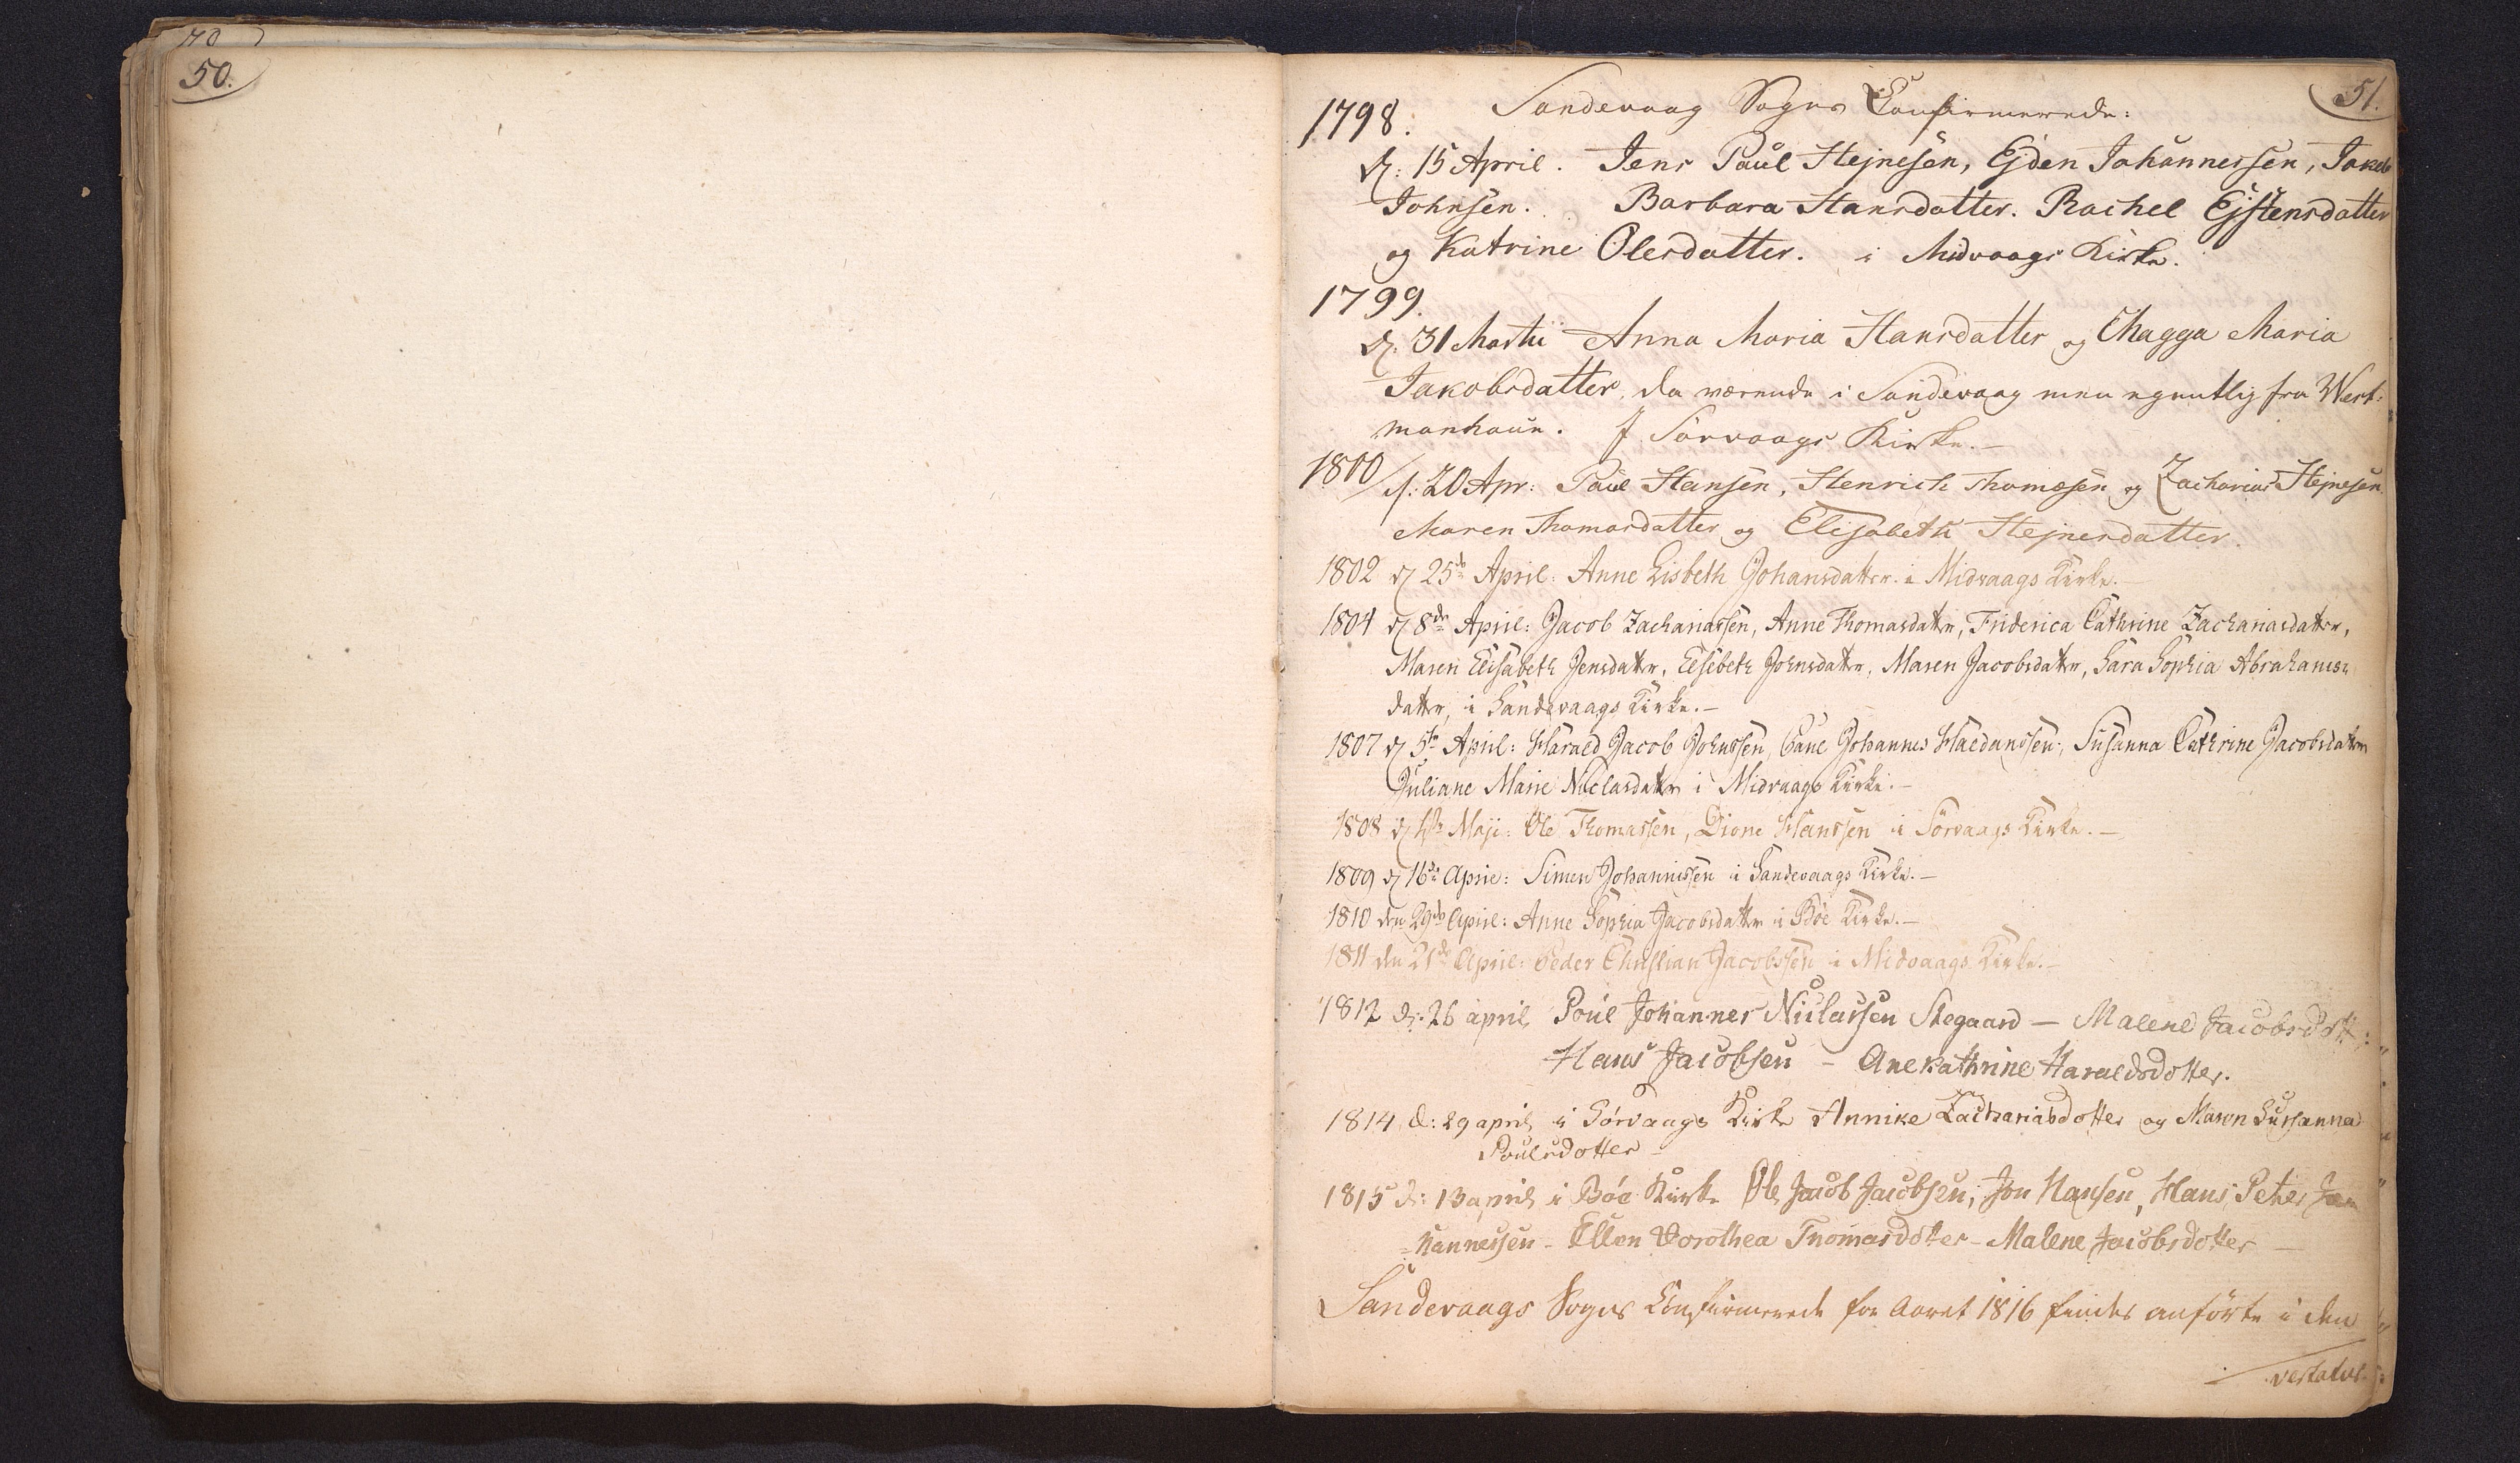 70
50.
51.
Sandevaag Sogns Confirmerede:
1798.
d: 15 April. Jens Paul Hejnesen, Ejden Johannessen, Jakob
Johnsen. Barbara Hansdatter. Rachel Ejstensdatter
og Katrine Olesdatter. i Midvaags Kirke.
1799.
d: 31 Martii Anna Maria Hansdatter og Magga Maria
Jakobsdatter, da værende i Sandevaag men egentlig fra West-
manhaun. I Sørvaags Kirke.—
1800 d: 20 Apr: Paul Hansen, Henrich Thomasen og Zacharias Hejnesen
Maren Thomasdatter og Elisabeth Hejnesdatter.
1802 d 25de April: Anne Lisbeth Johansdatter i Midvaags Kirke.—
1804 d 8de April: Jacob Zachariassen, Anne Thomasdatter, Friderica Cathrine Zachariasdatter,
Maren Elisabeth Jensdatter, Elsebeth Johnsdatter, Maren Jacobsdatter, Sara Sophia Abrahams-
datter, i Sandevaags Kirke.—
1807 d 5te April: Harald Jacob Johnssen, Poul Johannes Haldanssen, Susanna Cathrine Jacobsdatter
Juliane Marie Niclasdatter i Midvaags Kirke.—
1808 d Maji: Ole Thomassen, Dione Hanssen i Sørvaags Kirke.—
1809 d 16de April: Simen Johannissen i Sandevaags Kirke.—
1810 den 29de April: Anne Sophia Jacobsdatter i Bøe Kirke.—
1811 den 21de April: Peder Christian Jacobssen i Midvaags Kirke.—
1812 d: 26 april Poul Johannes Niclassen Skegaard — Malene Jacobsdott:
Hans Jacobsen — Ane Kathrine Haraldsdotter.
1814 d: 29 april i Sørvaags Kirke Annike Zachariasdotter og Maren Sussanna
Poulsdotter—
1815 d: 13 april i Bøe Kirke Ole Jacob Jacobsen, Jon Hansen, Hans Peter Jo
=hannessen — Ellen Dorothea Thomasdotter — Malene Jacobsdotter —
Sandevaags Sogns Confirmerede for Aaret 1816 findes anførte i den
vertatur